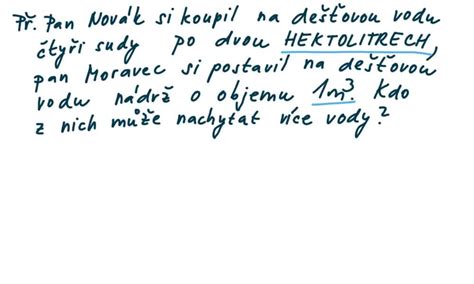 Př. Pan Novák si koupil na dešťovou vodu
čtyři sudy po dvou HEKTOLITRECH,
pan Moravec si postavil na dešťovou
vodu nádrž o objemu 1m³. Kdo
z nich může nachytat více vody?